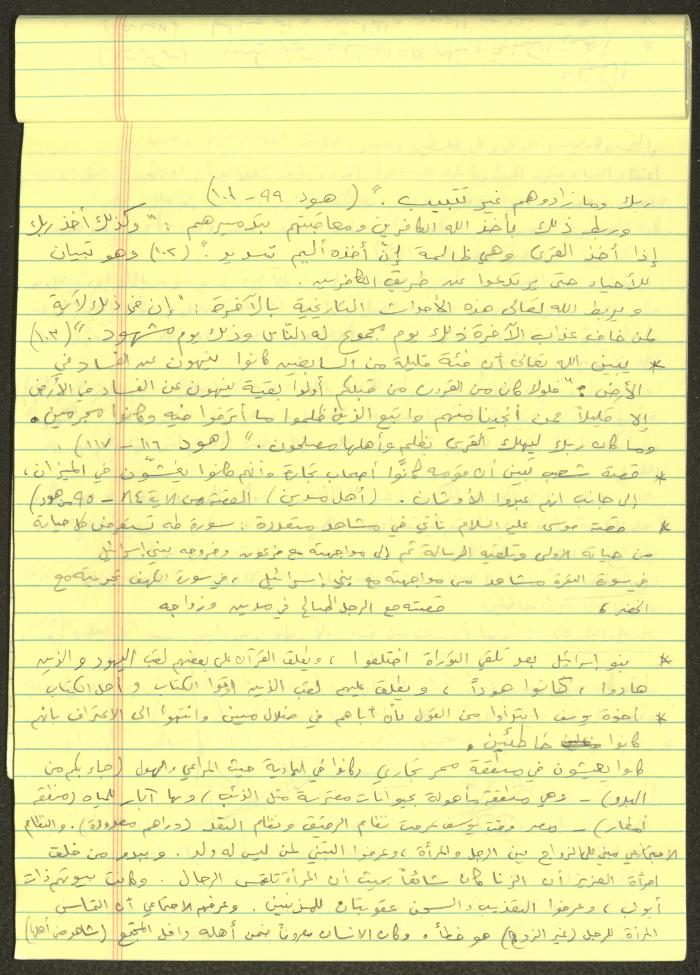 ربك وما زادوهم غير تتبيب." (هود ٩٩ - ١٠١)
وربط ذلك بأخذ الله الكافرين ومعاقبتهم بتدميرهم: "وكذلك أخذ ربك
إذا أخذ القرى وهي ظالمة إنّ أخذه أليم شديد." (١٠٢) وهو تبيان
للأحياء حتى يرتدعوا عن طريق الكافرين.
ويربط الله تعالى هذه الأحداث التاريخية بالآخرة: "إن في ذلك لآية
لمن خاف عذاب الآخرة ذلك يوم مجموع له النّاس وذلك يوم مشهود." (١٠٣)
* يبين الله تعالى أن فئة قليلة من السابقين كانوا ينهون عن الفساد في
الأرض: "فلولا كان من القرون من قبلكم أولوا بقية ينهون عن الفساد في الأرض
إلا قليلاً ممن أنجينا منهم واتبع الذين ظلموا ما أترفوا فيه وكانوا مجرمين.
وما كان ربك ليهلك القرى بظلم وأهلها مصلحون." (هود ١١٦ - ١١٧)
* قصة شعيب تبين أن قومه كانوا أصحاب تجارة وأنهم كانوا يغشّون في الميزان،
إلى جانب انهم عبدوا الأوثان. (أهل مدين) القصة من الآية ٨٤ - ٩٥ هود)
* قصة موسى عليه السلام تأتي في مشاهد متعددة: سورة طه تستعرض كل حياته
من حياته الاولى وتلقيه الرسالة ثم إلى مواجهته مع فرعون وخروجه ببني إسرائيل
في سورة البقرة مشاهد من مواجهته مع بني إسرائيل، في سورة الكهف تجربته مع
الخضر، قصته مع الرجل الصالح في مدين وزواجه
* بنو إسرائيل بعد تلقي التوراة اختلفوا، ويطلق القرآن على بعضهم لقب اليهود والذين
هادوا، كانوا هوداً، ويطلق عليهم لقب الذين اوتوا الكتاب وأهل الكتاب
* اخوة يوسف ابتدأوا من القول بأن أباهم في ضلال مبين وانتهوا الى الاعتراف بانهم
كانوا خاطئين.
كانوا يعيشون في منطقة ممر تجاري وكانوا في البادية حيث المراعي والسهول (جاء بكم من
البدو) - وهي منطقة مأهولة بحيوانات مفترسة مثل الذئب، وبها آبار للمياه (منطقة
أمطار) - مصر وقت يوسف عرفت نظام الرقيق ونظام النقد (دراهم معدودة). والنظام
الاجتماعي مبني على الزواج بين الرجل والمرأة، وعرفوا التبني لمن ليس له ولد. ويبدو من خلال
امرأة العزيز أن الزنا كان شائعاً بحيث أن المرأة تلقي الرجال. وكانت بيوتهم ذات
أبواب، وعرفوا التعذيب والسجن عقوبتان للمذنبين. وعرفهم الاجتماعي أن
المرأة للرجل (غير الزوج) هو خطأ. وكان الانسان معروفاً ضمن أهله داخل المجتمع (شاهد من أهلها)